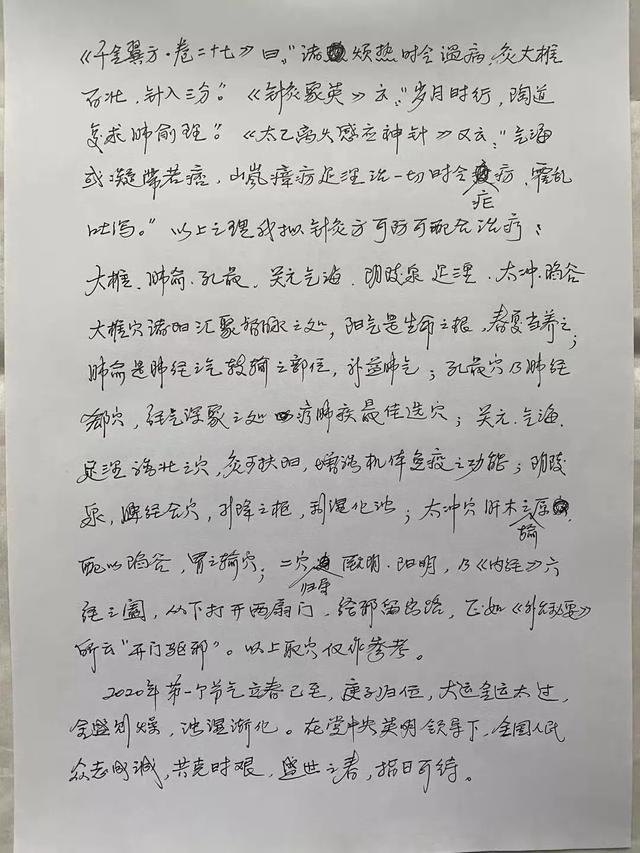 《千金翼方·卷二十七》曰:"诸烦热时令温病,灸大椎
百壮,针入三分"。《针灸聚英》云:"岁月时行,陶道
复求肺俞理"。《太乙离火感应神针》又云:"气海
或凝滞若痞,山岚瘴疠足理治一切时令疠疟,霍乱
吐泻。"以上之理我拟针灸方可防可配合治疗:
大椎、肺俞、孔最、关元气海、阴陵泉足三里、太冲、陷谷
大椎穴诸阳汇聚督脉之处,阳气是生命之根,春夏当养之;
肺俞是肺经之气转输之部位,补益肺气;孔最穴乃肺经
郄穴,经气深聚之处疗肺疾最佳选穴;关元、气海、
足三里强壮之穴,灸可扶阳,增强机体免疫之功能;阴陵
泉,脾经合穴,升降之枢,利湿化浊;太冲穴肝木之输原,
配以陷谷,胃之输穴;二穴归导厥阴、阳明,乃《内经》六
经之阖,从下打开两扇门,给邪留出路,正如《外经秘要》
所云"开门驱邪"。以上取穴仅作参考。
2020年第一个节气立春已至,庚子归位,大运金运太过,
金盛则燥,浊湿渐化。在党中央英明领导下,全国人民
众志成城,共克时艰,盛世之春,指日可待。